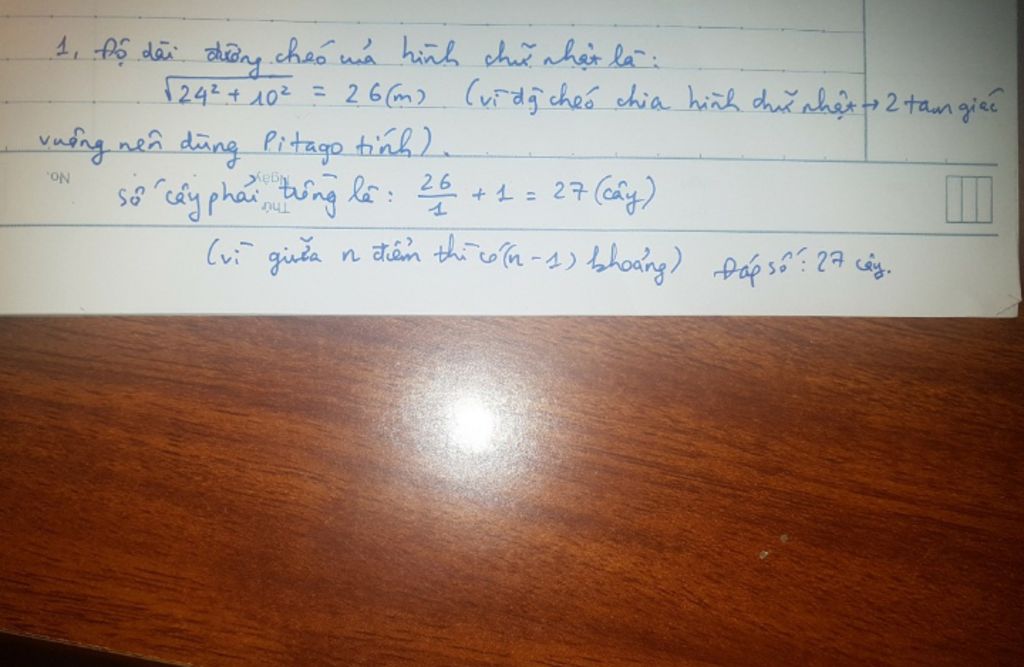 1, Độ dài đường chéo mà hình chữ nhật là:
√24² + 10² = 26(m) (vì đg chéo chia hình chữ nhật → 2 tam giác
vuông nên dùng Pitago tính).
No.
Thứ
Ngày
số cây phải trồng là: 26/1 + 1 = 27 (cây)
(vì giữa n điểm thì có (n - 1) khoảng) Đáp số: 27 cây.